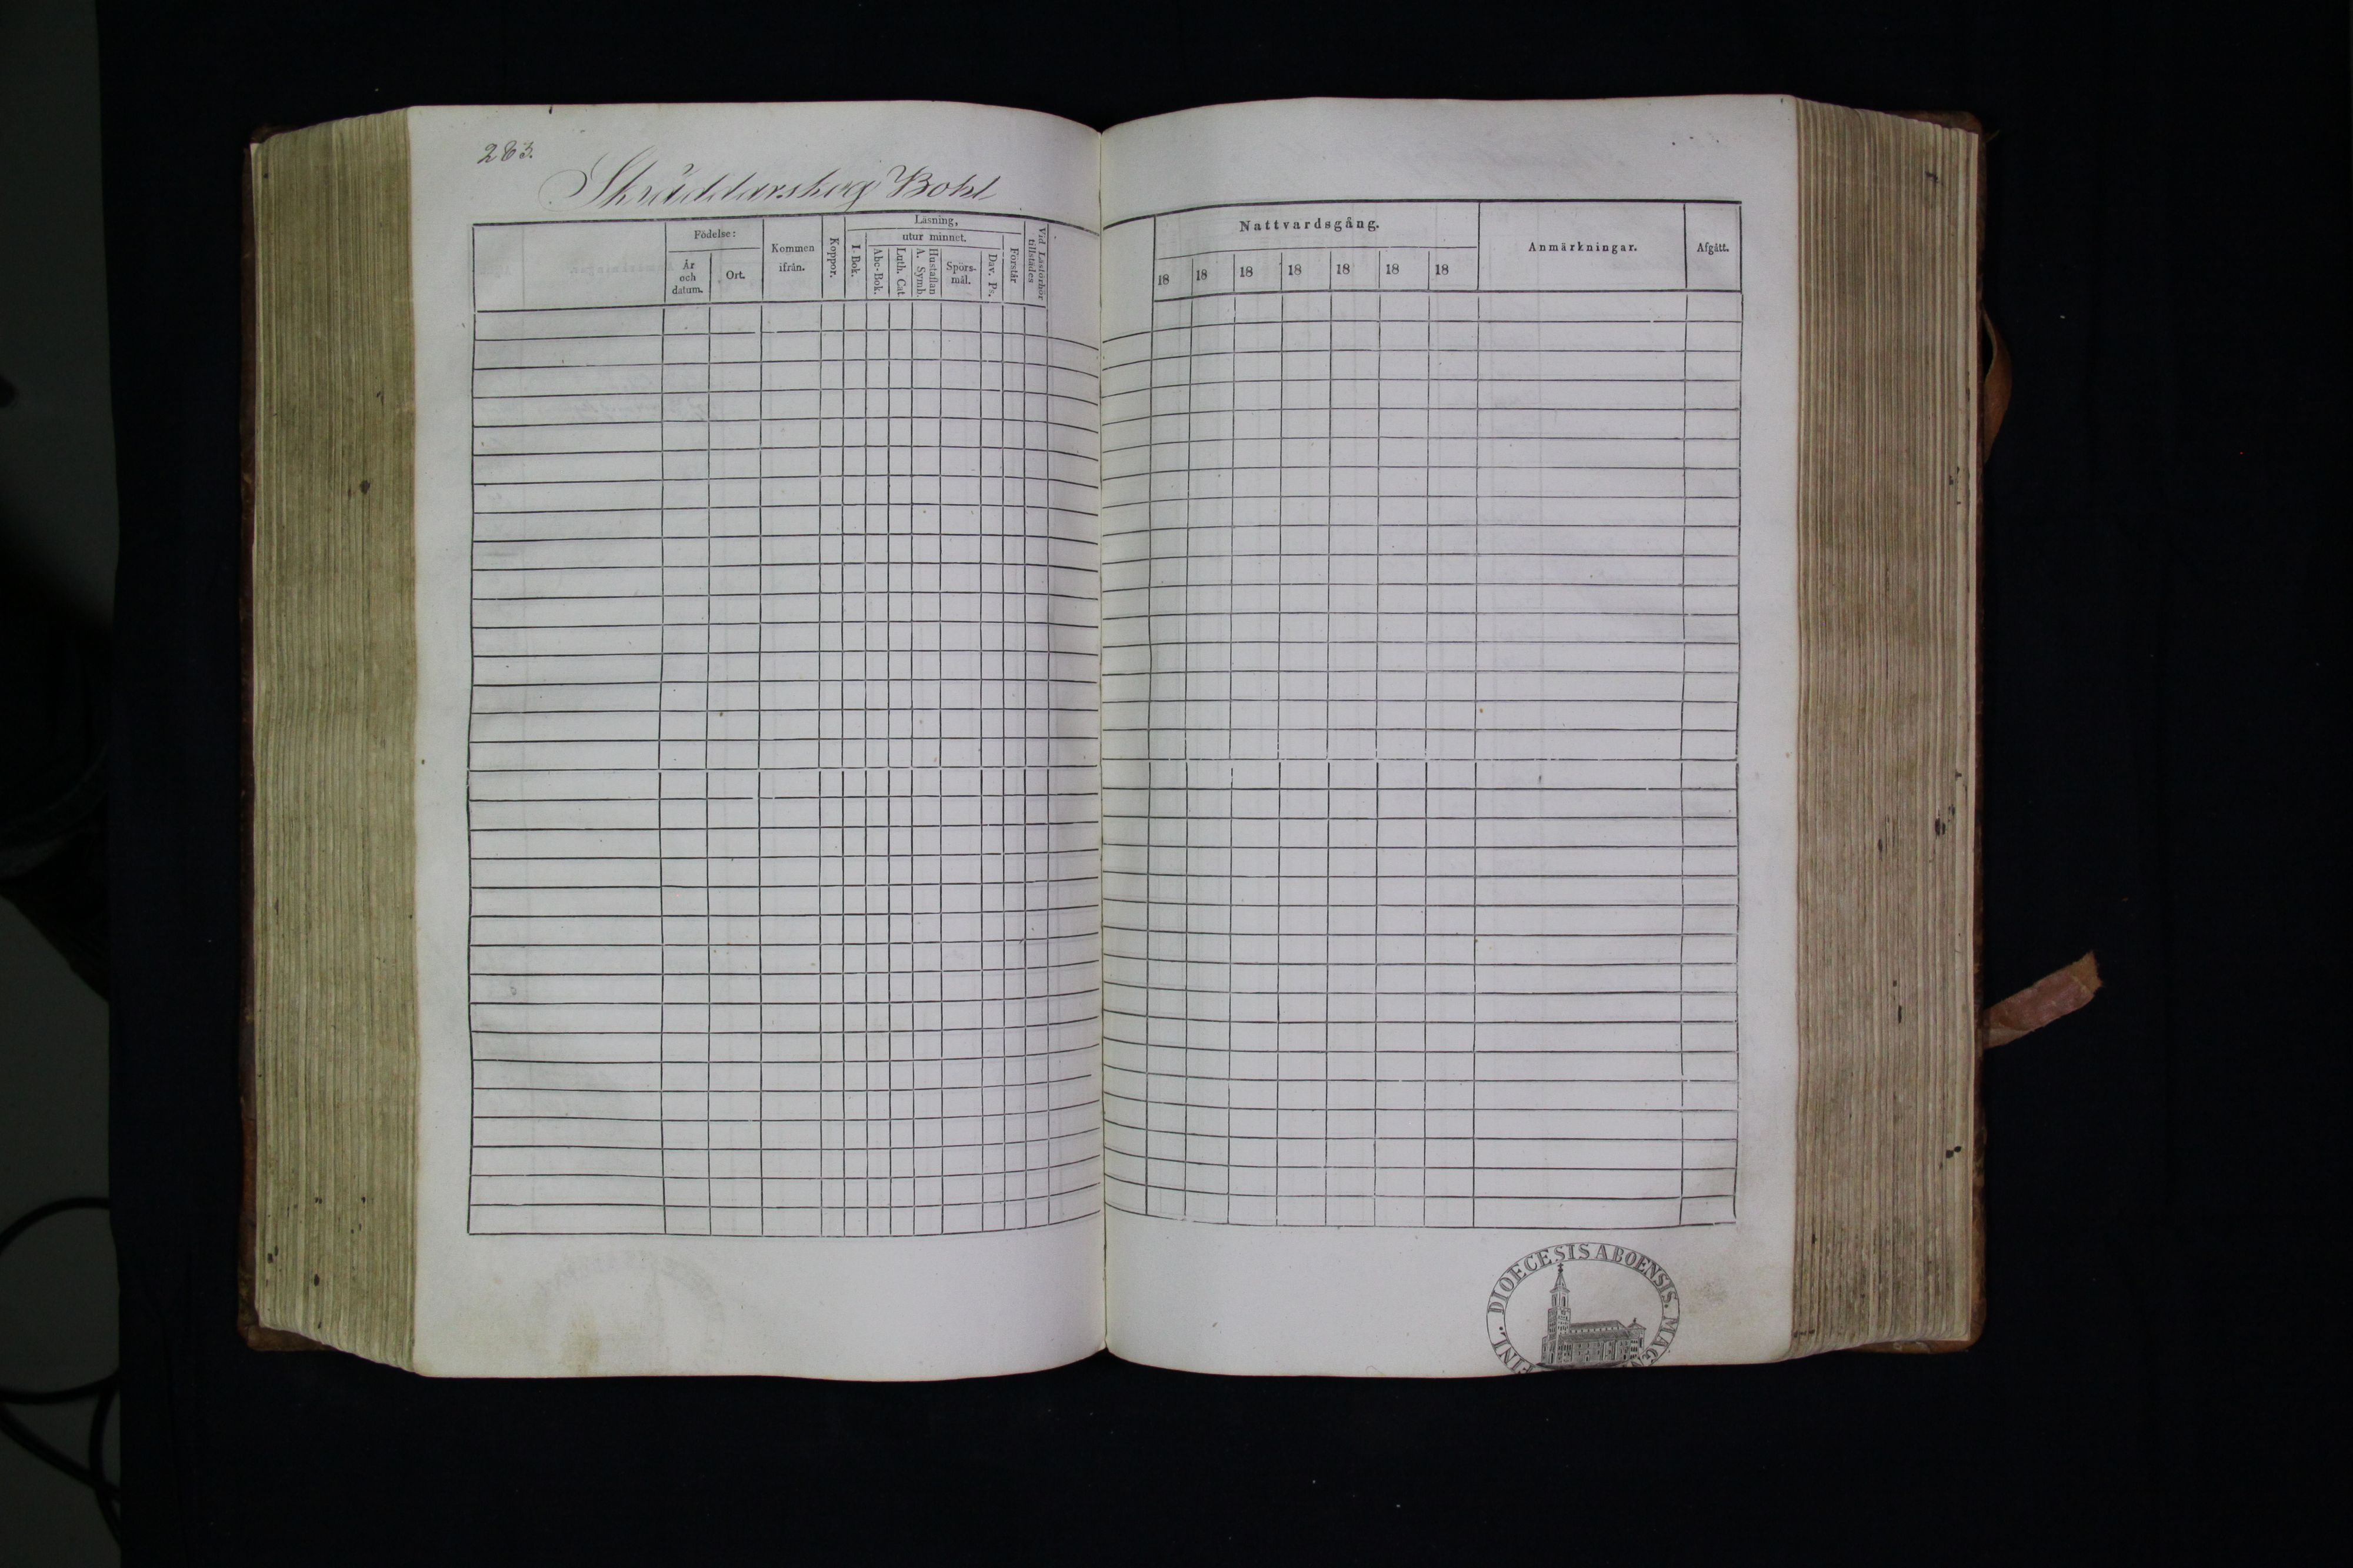 283.
Skräddarskog Bohl
Födelse:
År och datum.
Ort.
Kommen ifrån.
Koppor.
Läsning,
I. Bok.
utur minnet.
Abc-Bok.
Luth. Cat.
Hustaflan A. Symb.
Spörsmål.
Dav. Ps.
Förstår
Vid Läsförhör tillstädes
Nattvardsgång.
18 18 18 18 18 18 18
Anmärkningar.
Afgått.
FINL. DIOECESIS ABOENSIS. MAGN